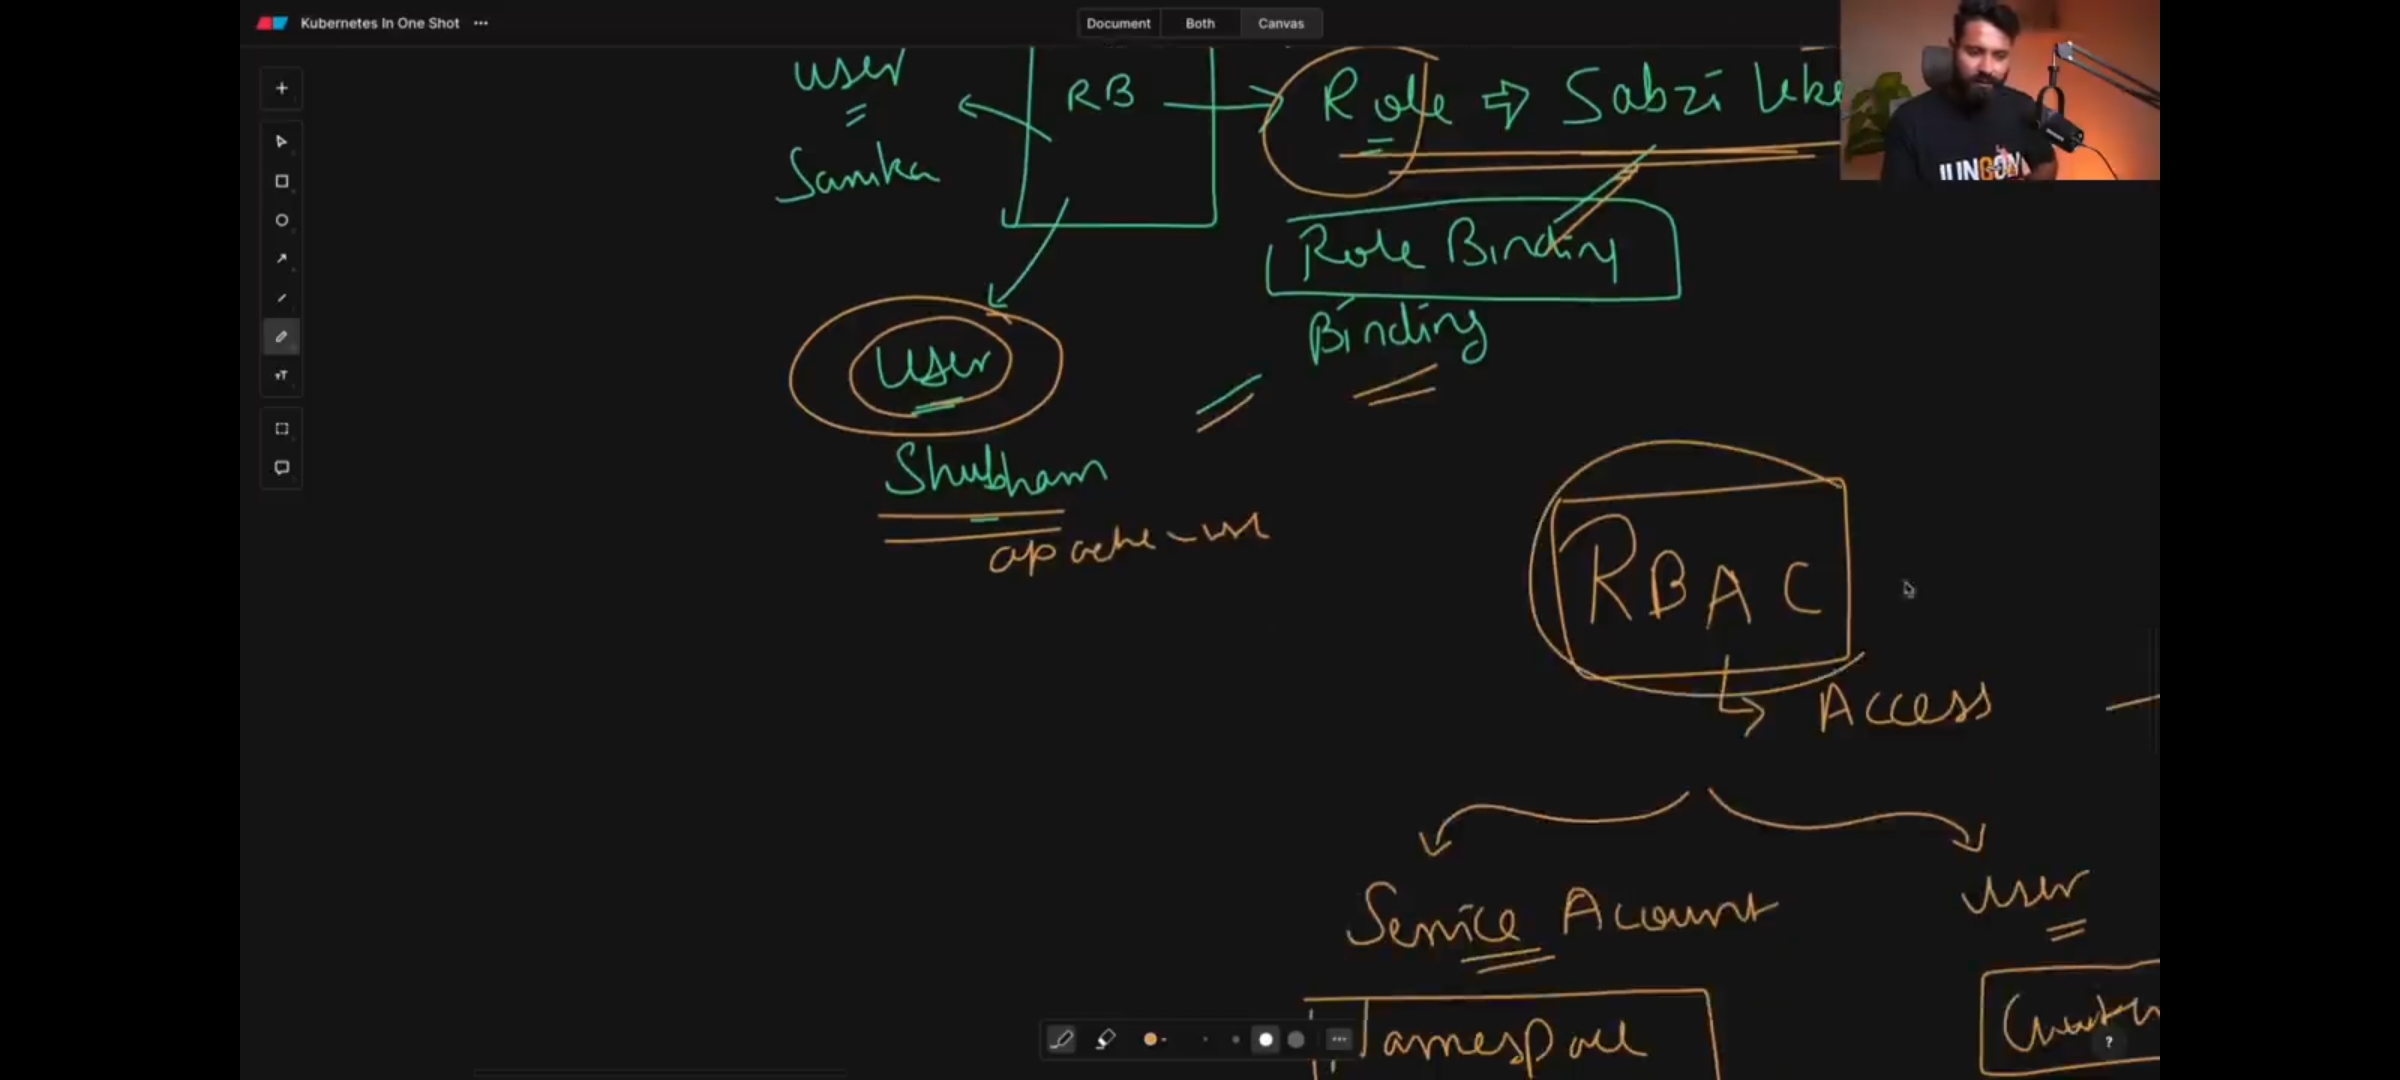 Kubernetes In One Shot ...
Document Both Canvas
User
RB
Role ⇒ Sabzi
Sanika
Role Binding
Binding
User
Shubham
apache-usr
RBAC
Access
Service Account
User
Namespace
Cluster
?